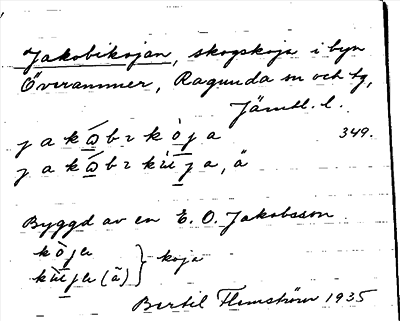 Jakobikojan, skogskoja i byn
Överammer, Ragunda sn och tg,
Jämtl. l.
jakåbıkòja 349.
jakåbıkùja, ä
Byggd av en E. O. Jakobsson
kòje } koja
kùje (ä)
Bertil Flemström 1935